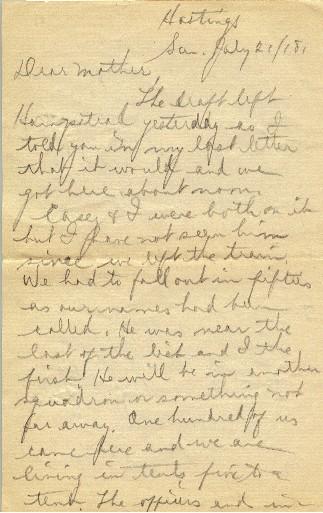 Hastings
Sun. July 21/18.
Dear Mother,
The draft left
Hampstead yesterday as I
told you in my last letter
that it would and we
got here about noon.
Casey & I were both on it
but I have not seen him
since we left the train.
We had to fall out in fifties
as our names had been
called. He was near the
last of the list and I the
first. He will be in another
squadron or something not
far away. One hundred of us
came here and we are
living in tents, five to a
tent. The officers and in-